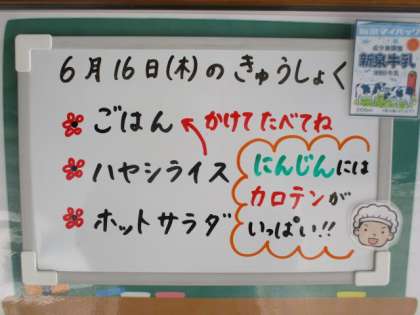 6月16日(木)のきゅうしょく
ごはん かけてたべてね
ハヤシライス
ホットサラダ
にんじんには
カロテンが
いっぱい!!
新泉牛乳